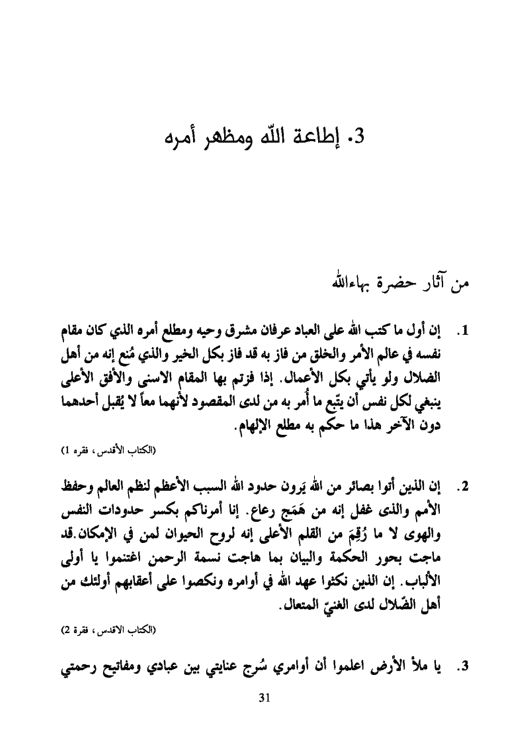 3. إطاعة اللّه ومظهر أمره
من آثار حضرة بهاءالله
1. إن أول ما كتب الله على العباد عرفان مشرق وحيه ومطلع أمره الذي كان مقام
نفسه في عالم الأمر والخلق من فاز به قد فاز بكل الخير والذي مُنع إنه من أهل
الضلال ولو يأتي بكل الأعمال. إذا فزتم بها المقام الاسنى والأفق الأعلى
ينبغي لكل نفس أن يتّبع ما أُمر به من لدى المقصود لأنهما معاً لا يُقبل أحدهما
دون الآخر هذا ما حكم به مطلع الإلهام.
(الكتاب الأقدس، فقره 1)
2. إن الذين أتوا بصائر من الله يَرون حدود الله السبب الأعظم لنظم العالم وحفظ
الأمم والذى غفل إنه من هَمَج رعاع. إنا أمرناكم بكسر حدودات النفس
والهوى لا ما رُقِمَ من القلم الأعلى إنه لروح الحيوان لمن في الإمكان.قد
ماجت بحور الحكمة والبيان بما هاجت نسمة الرحمن اغتنموا يا أولى
الألباب. إن الذين نكثوا عهد الله في أوامره ونكصوا على أعقابهم أولئك من
أهل الضّلال لدى الغنيّ المتعال.
(الكتاب الاقدس، فقرة 2)
3. يا ملأ الأرض اعلموا أن أوامري سُرج عنايتي بين عبادي ومفاتيح رحمتي
31